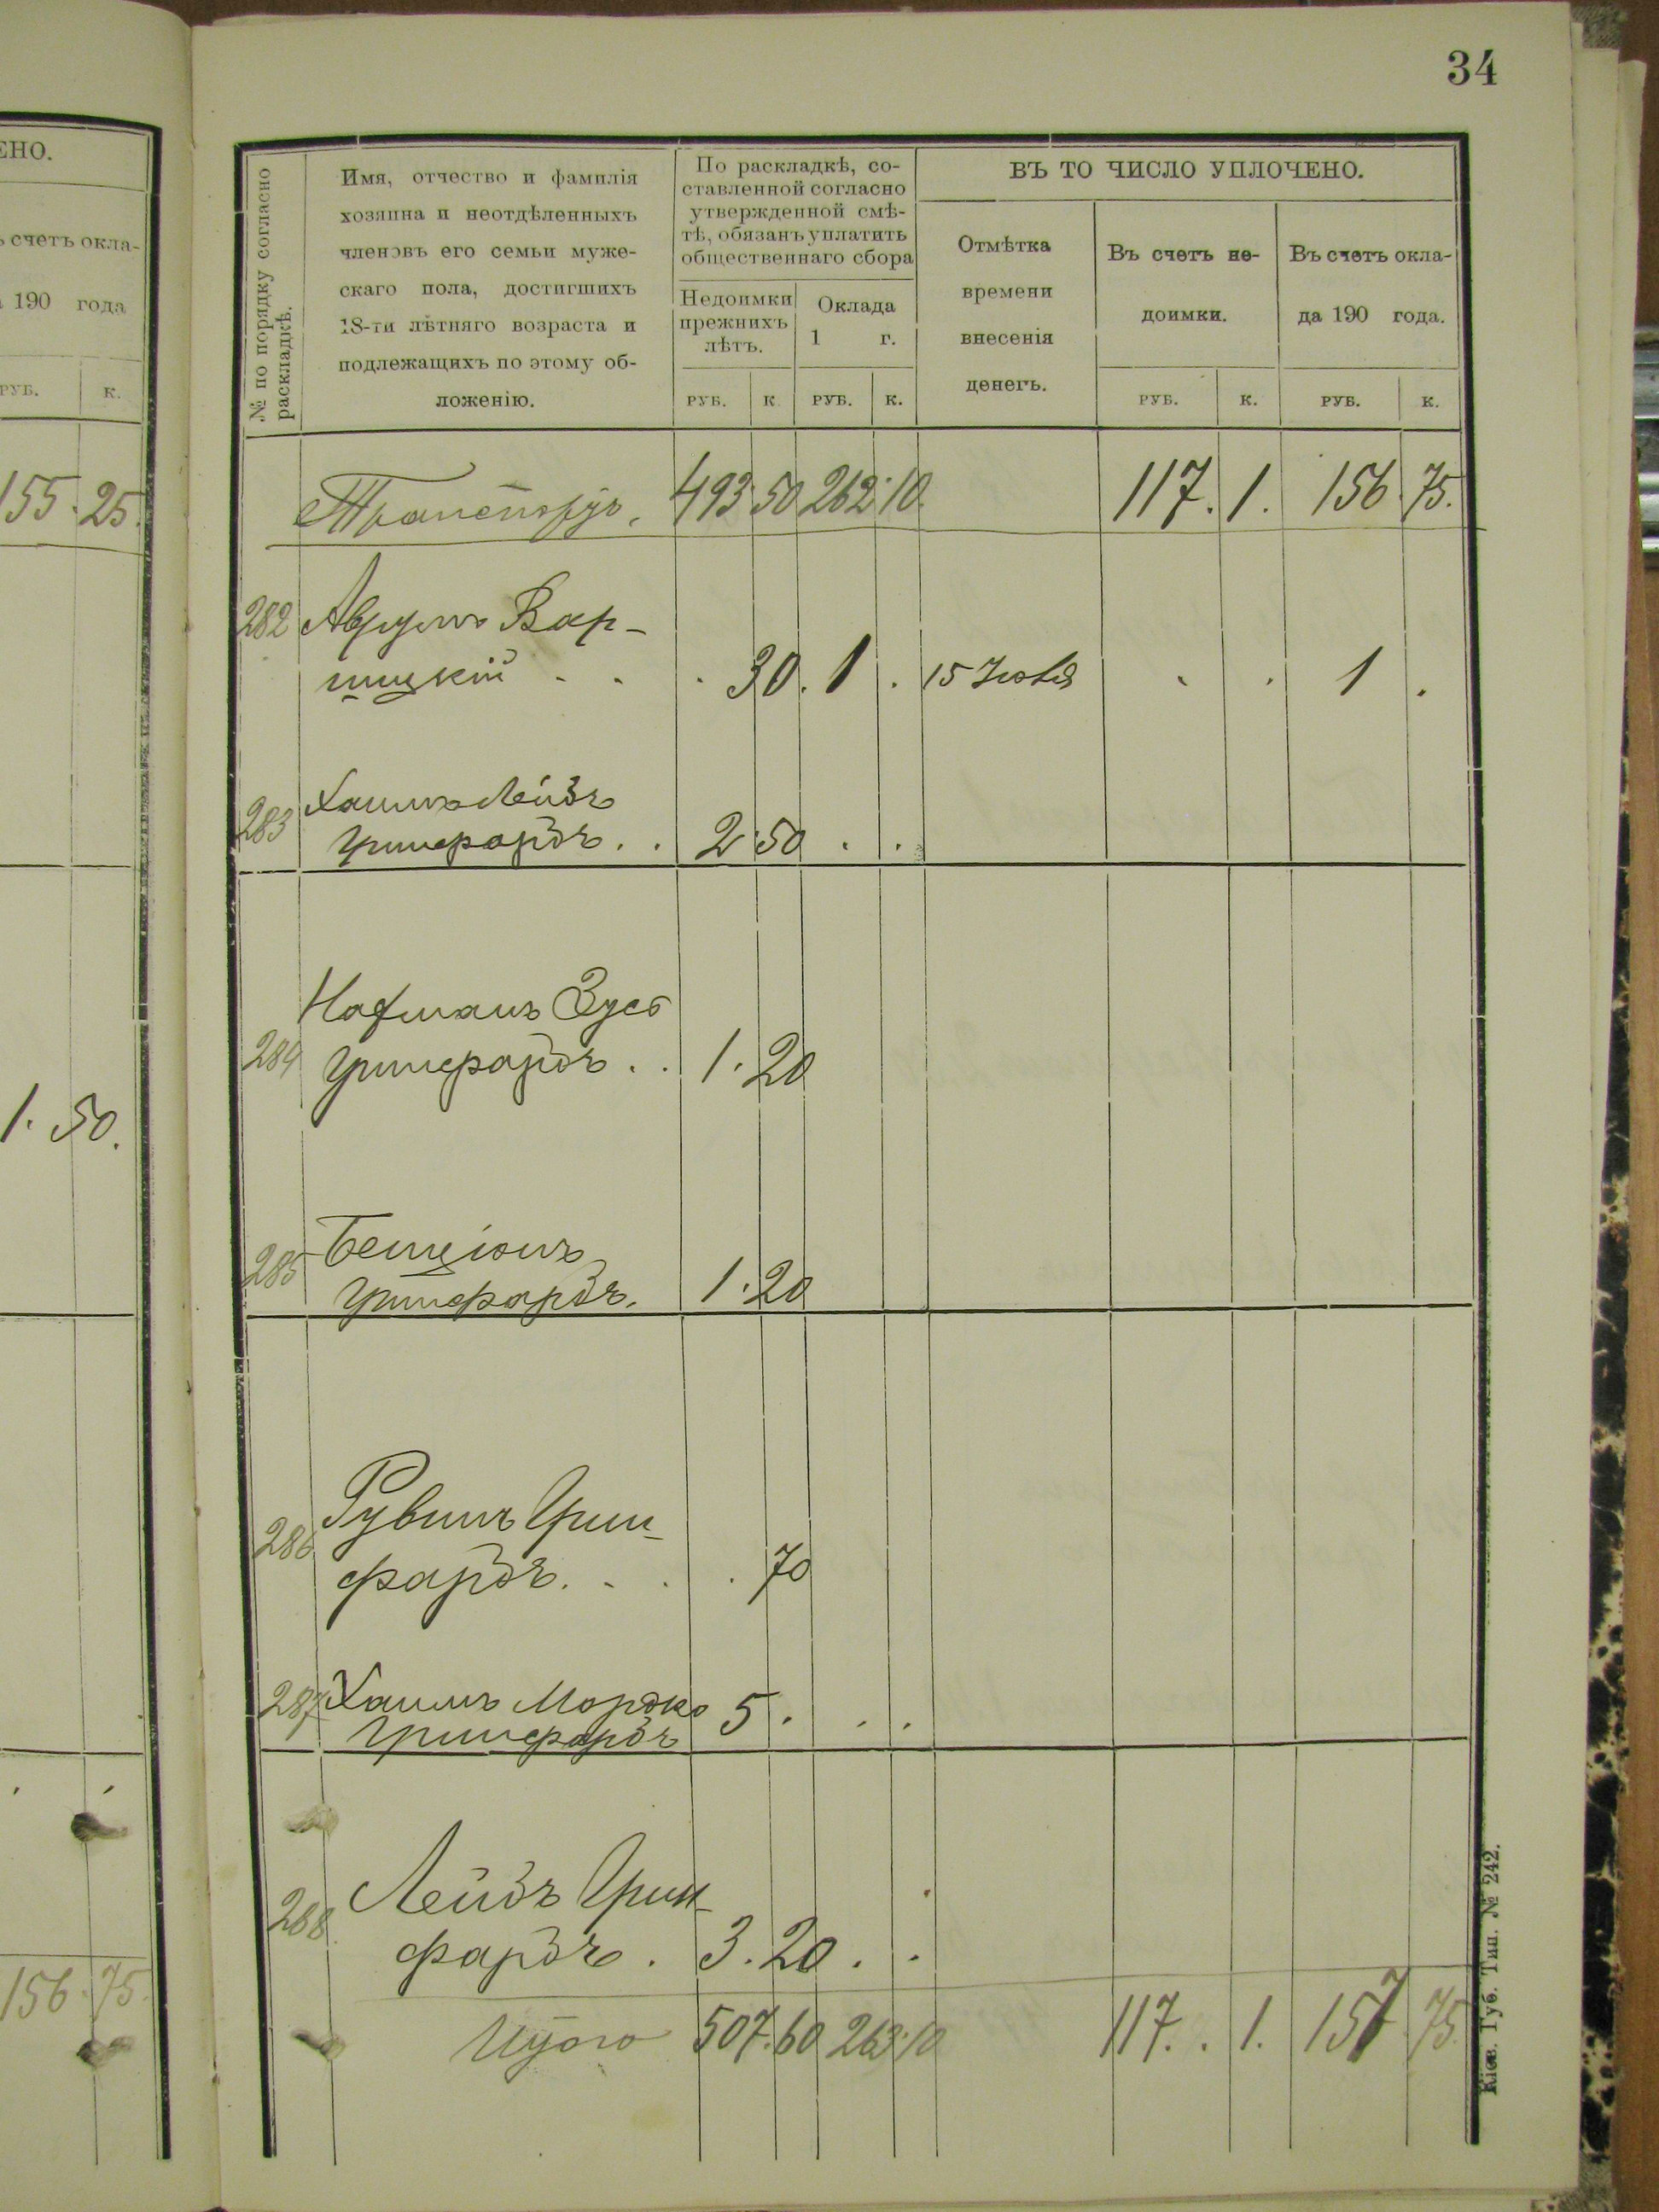 34
ЕНО.
ъ счетъ окла-
а 190 года
РУБ. К.
155. 25.
1. 50.
156. 75.
№ по порядку согласно
раскладкѣ.
Имя, отчество и фамилія
хозяина и неотдѣленныхъ
членовъ его семьи муже-
скаго пола, достигшихъ
18-ти лѣтняго возраста и
подлежащихъ по этому об-
ложенію.
По раскладкѣ, со-
ставленной согласно
утвержденной смѣ-
тѣ, обязанъ уплатить
общественнаго сбора
Недоимки
прежнихъ
лѣтъ.
Оклада
1 г.
РУБ. К РУБ. К.
ВЪ ТО ЧИСЛО УПЛОЧЕНО.
Отмѣтка
времени
внесенія
денегъ.
Въ счетъ не-
доимки.
РУБ. К.
Въ счетъ окла-
да 190 года.
РУБ. К.
Транспортъ. 493 50 262 10. 117. 1. 156 75.
282 Аврумъ Вар-
шицкій . . . 30. 1 . 15 Июля . . 1 .
283 Хаимъ Лейбъ
Гринфардъ . . 2 50 . .
284 Нафманъ Зусь
Гринфардъ . . 1. 20
285 Бенціонъ
Гринфардъ. 1. 20
286 Рувинъ Грин-
фардъ. . . . 70
287 Хаимъ Мордко
Гринфардъ 5 . . .
288. Лейбъ Грин-
фардъ . 3. 20 . .
Итого 507. 60 263. 10 117. . 1. 157 75.
Кіев. Губ. Тип. № 242.